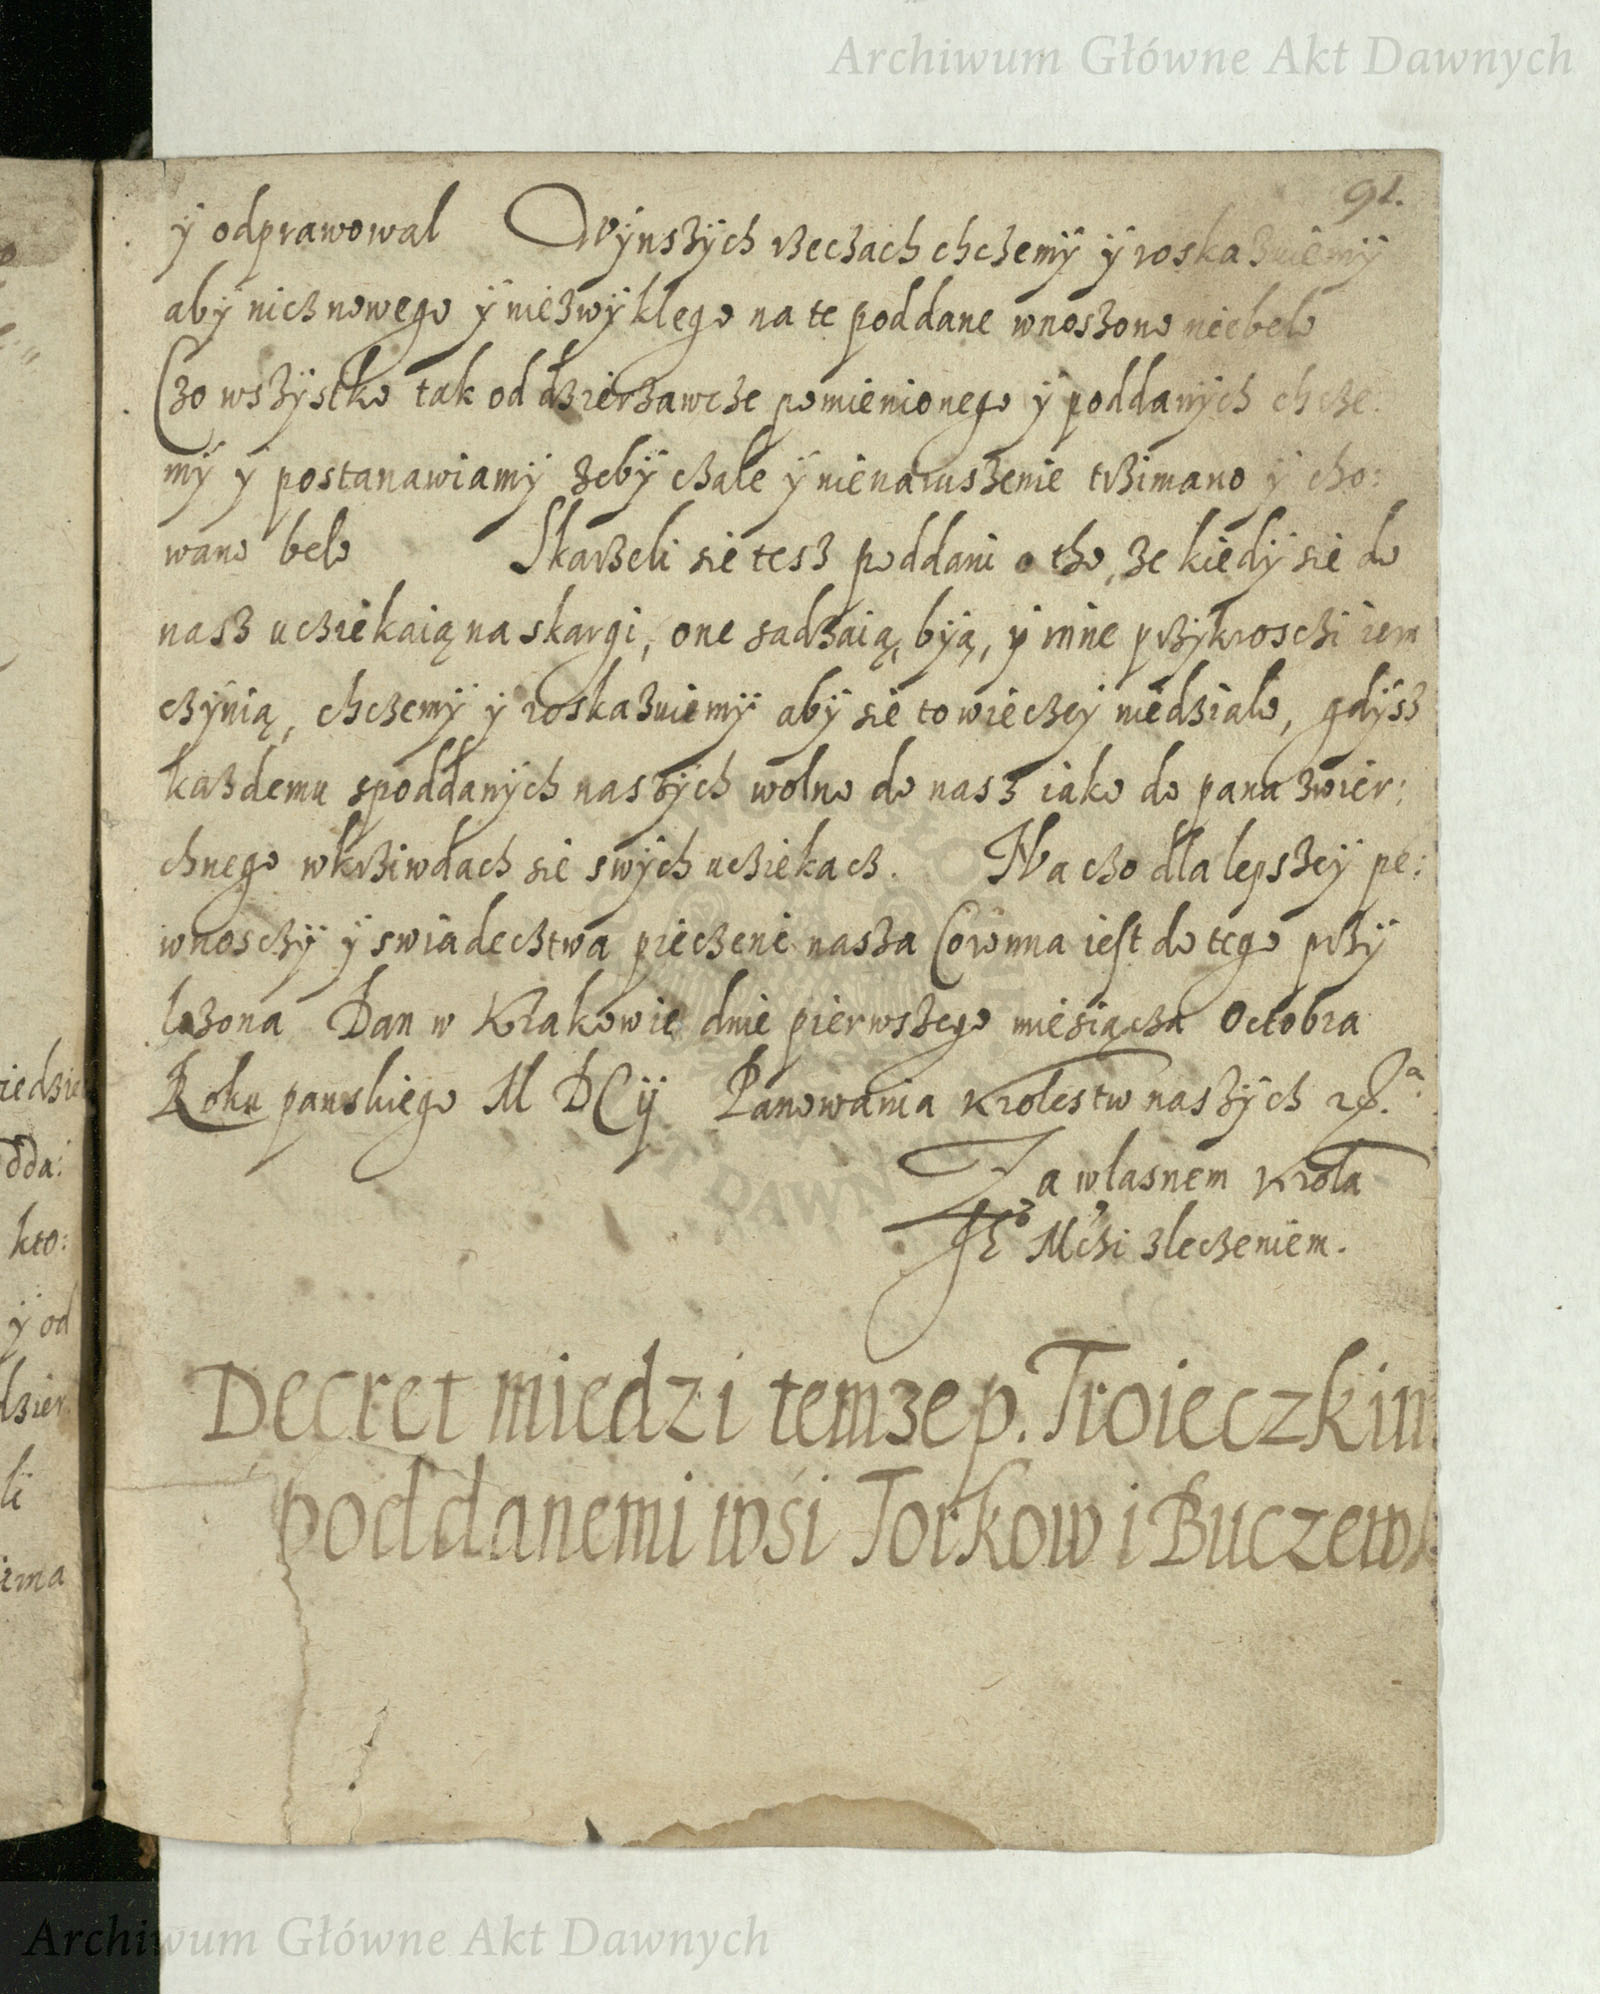 Archiwum Główne Akt Dawnych
91.
ÿ odprawowal Wÿnszÿch rzeczach chczemÿ ÿ roskazuiemÿ
abÿ nicz nowego ÿ niezwÿklego na te poddane wnoszono niebelo
Czo wszÿstko tak od dzierzawcze pomienionego ÿ poddanÿch chcze:
mÿ ÿ postanawiamÿ zebÿ czale ÿ nienaruszenie trzimano ÿ cho:
wano belo Skarzeli sie tesz poddani o tho, ze kiedÿ sie do
nasz uciekaią na skargi, one sadzaią, bÿą, ÿ inne przÿkrosczi iem
czÿnią, chczemÿ ÿ roskazuiemÿ abÿ sie to wieczeÿ niedzialo, gdÿsz
kazdemu spoddanÿch naszÿch wolno do nasz iako do pana zwier:
chnego wkrziwdach sie swÿch uciekacz. Na czo dla lepszeÿ pe:
wnosczÿ ÿ swiadecztwa pieczenc nasza Coronna iest do tego przÿ
lozona Dan w Krakowie dnie pierwszego miesiącza Octobra
Roku panskiego M DCij Panowania Krolestw naszÿch
Za wlasnem Krola
Je⁰ Mczi zleczeniem.
Decret miedzi temze p. Troieczkim
poddanemi wsi Torkow i Buczewk
iedzie
dda:
kto:
ÿ od
dzier
li
ima
Archiwum Główne Akt Dawnych